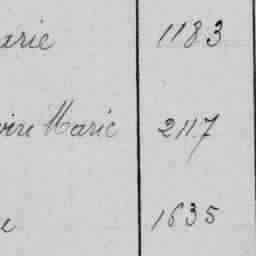 arie 1183
oire Marie 2117
e 1635